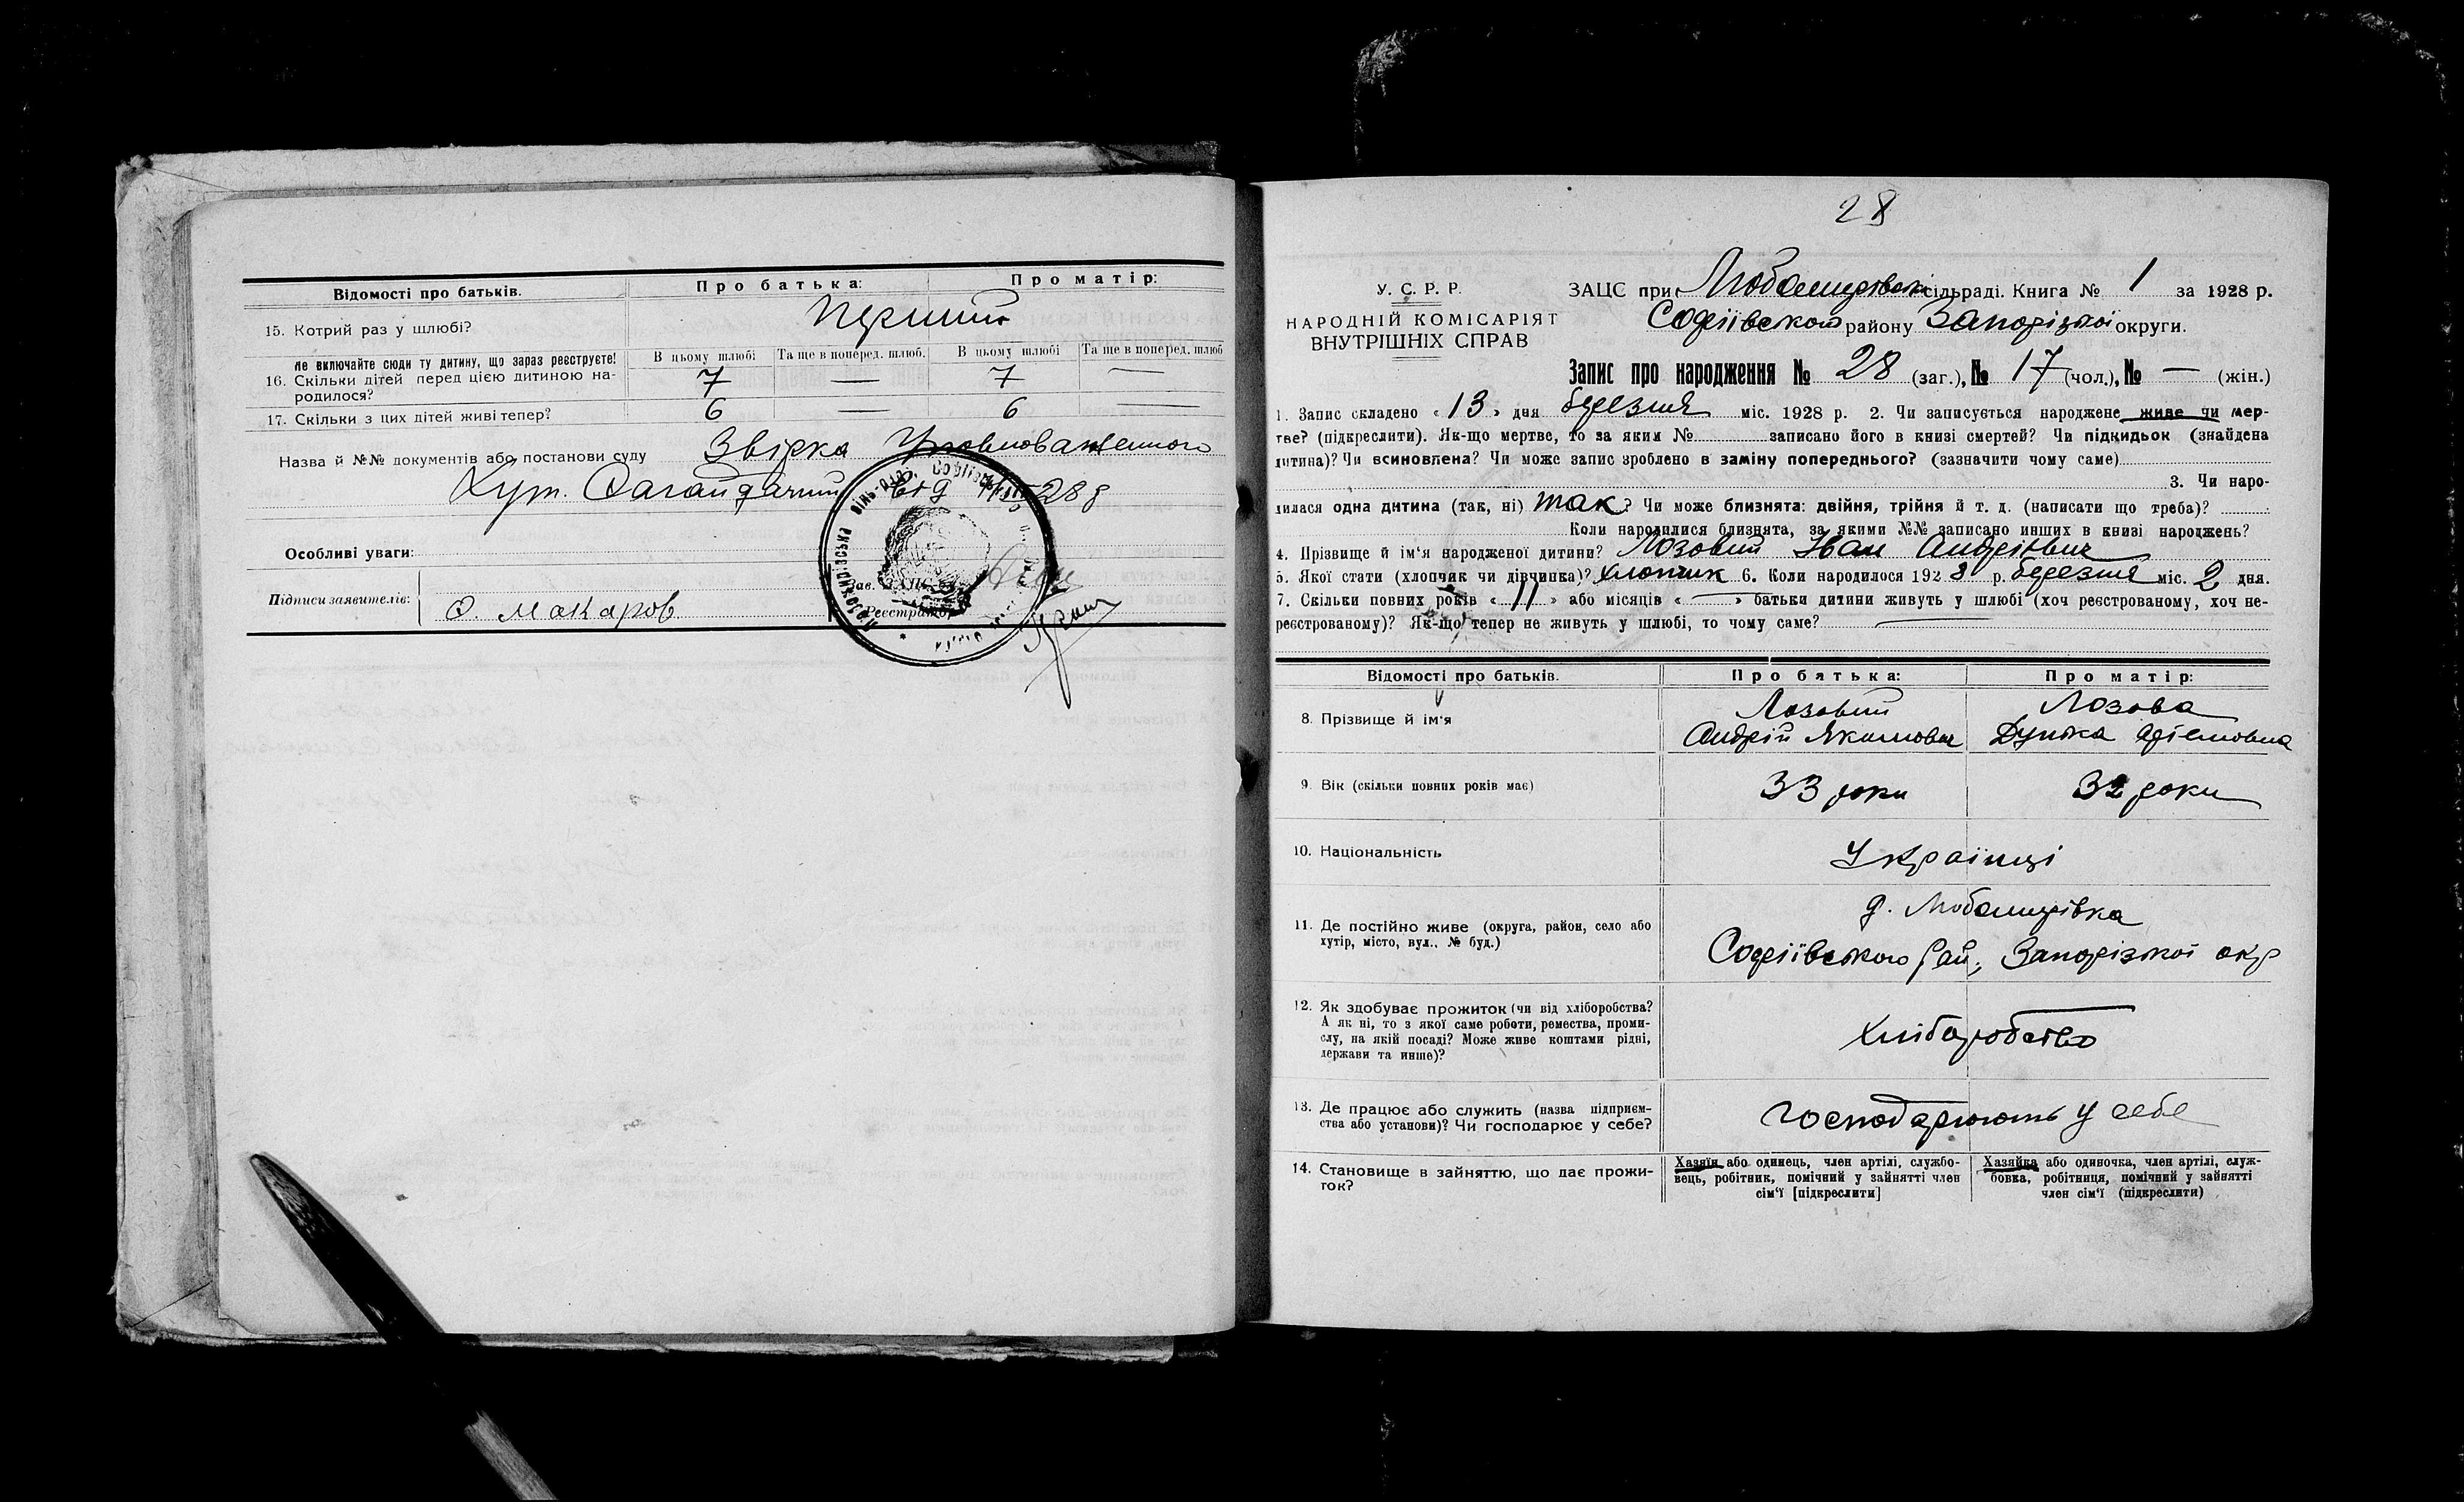 Відомості про батьків. Про батька: Про матір:
15. Котрий раз у шлюбі? Перший
Не включайте сюди ту дитину, що зараз реєструєте! В цьому шлюбі Та ще в поперед. шлюб. В цьому шлюбі Та ще в поперед. шлюб
16. Скільки дітей перед цією дитиною на-
родилося? 7 — 7 —
17. Скільки з цих дітей живі тепер? 6 — 6 —
Назва й №№ документів або постанови суду Звірка Уповноваженного
Хут. Сагайдачний від
Особливі уваги:
Підписи заявителів: О. Макаров
Реєстратор
28
У. С. Р. Р.
НАРОДНІЙ КОМІСАРІЯТ
ВНУТРІШНІХ СПРАВ
ЗАЦС при Любомирівськ сільраді. Книга № 1 за 1928 р.
Софіївського району Запорізької округи.
Запис про народження № 28 (заг.), № 17 (чол.), № — (жін.)
1. Запис складено « 13 » дня березня міс. 1928 р. 2. Чи записується народжене живе чи мер-
тве? (підкреслити). Як-що мертве, то за яким № записано його в книзі смертей? Чи підкидьок (знайдена
дитина)? Чи всиновлена? Чи може запис зроблено в заміну попереднього? (зазначити чому саме)
3. Чи наро-
дилася одна дитина (так, ні) так? Чи може близнята: двійня, трійня й т. д. (написати що треба)?
Коли народилися близнята, за якими №№ записано инших в книзі народжень?
4. Прізвище й ім'я народженої дитини? Лозовий Іван Андрієвич
5. Якої стати (хлопчик чи дівчинка)? хлопчик 6. Коли народилося 1928 р. березня міс. 2 дня.
7. Скільки повних років « 11 » або місяців « — » батьки дитини живуть у шлюбі (хоч реєстрованому, хоч не-
реєстрованому)? Як-що тепер не живуть у шлюбі, то чому саме? —
Відомості про батьків. Про батька: Про матір:
8. Прізвище й ім'я Лозовий Лозова
Андрій Якимович Дунька Артемовна
9. Вік (скільки повних років має) 33 роки 32 роки
10. Національність Українці
11. Де постійно живе (округа, район, село або
хутір, місто, вул., № буд.) д. Любомирівка
Софіївського рай, Запорізької окр
12. Як здобуває прожиток (чи від хліборобства?
А як ні, то з якої саме роботи, ремества, проми-
слу, на якій посаді? Може живе коштами рідні,
держави та инше)? Хліборобство
13. Де працює або служить (назва підприєм-
ства або установи)? Чи господарює у себе? господарюють у себе
14. Становище в зайняттю, що дає прожи-
ток?
Хазяїн або одинець, член артілі, службо-
вець, робітник, помічний у зайнятті член
сім'ї [підкреслити]
Хазяйка або одиночка, член артілі, служ-
бовка, робітниця, помічний у зайнятті
член сім'ї (підкреслити)